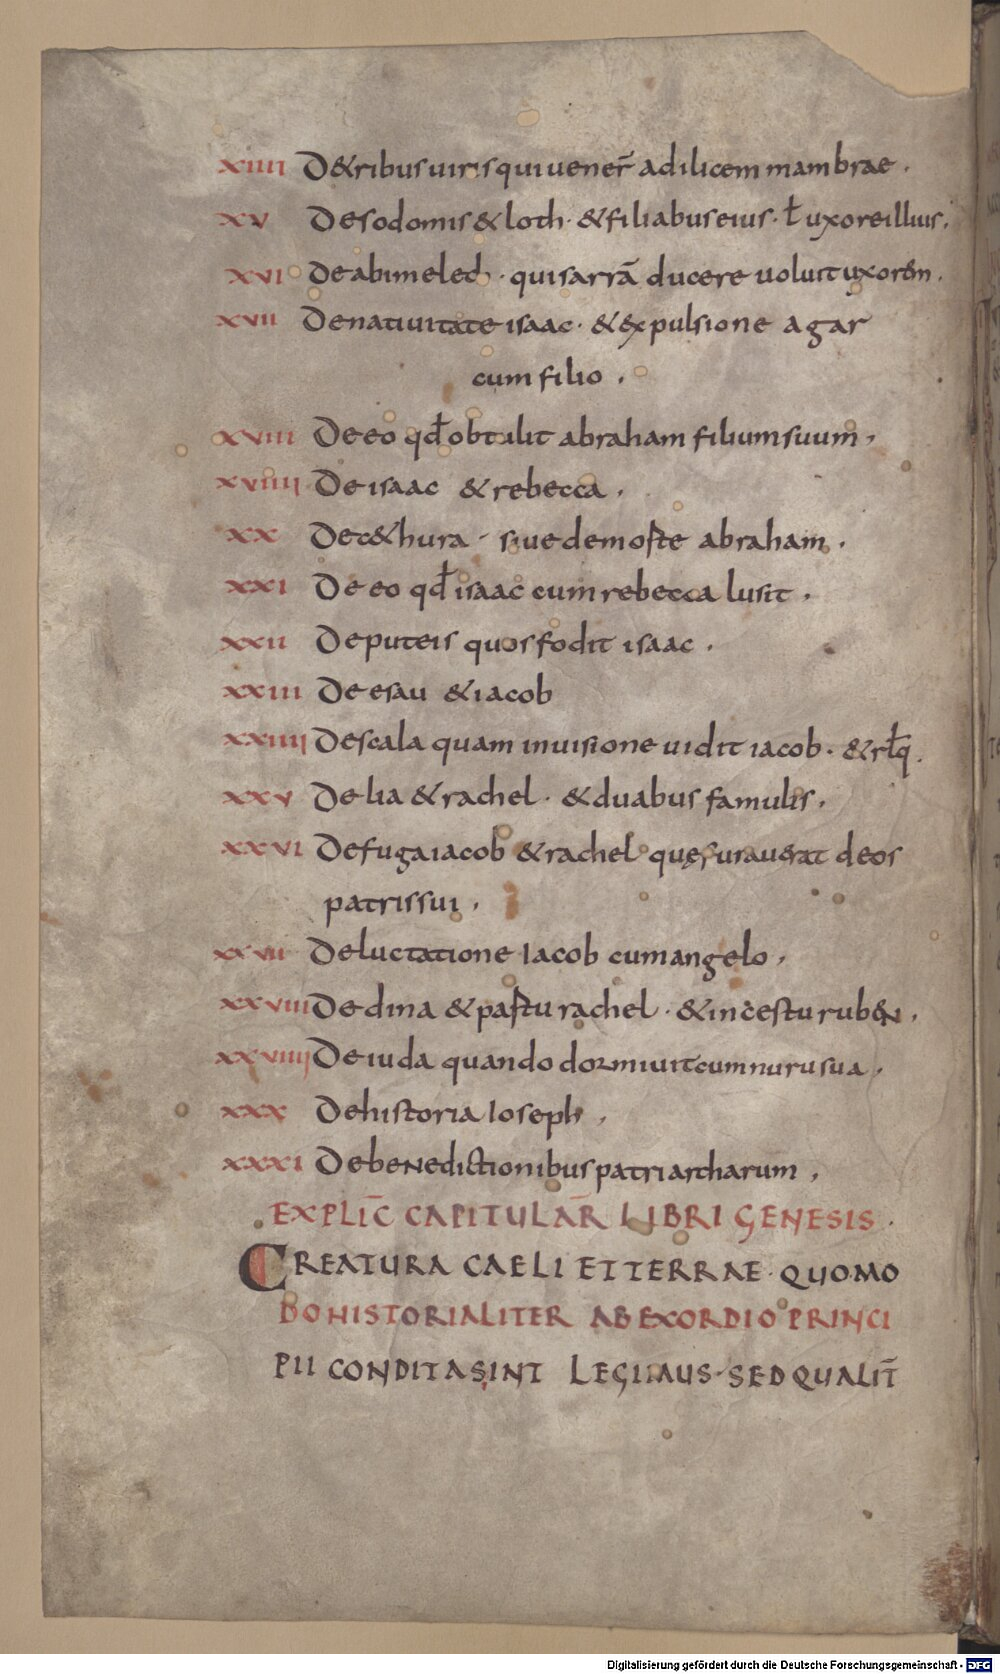 XIIII D&ribus uiris qui uener̄ ad ilicem mambrae .
XV De sodomis & loth · & filiabus eius · ł uxore illius .
XVI De abimelech · qui sarrā ducere uoluit uxorem .
XVII De natiuitate isaac · & expulsione agar
cum filio .
XVIII De eo qđ obtulit abraham filium suum .
XVIIII De isaac & rebecca .
XX De c&hura · siue de morte abraham .
XXI De eo qđ isaac cum rebecca lusit .
XXII De puteis quos fodit isaac .
XXIII De esau & iacob
XXIIII De scala quam in uisione uidit iacob · & rłq .
XXV De lia & rachel · & duabus famulis .
XXVI De fuga iacob & rachel quę furauerat deos
patris sui .
XXVII De luctatione Iacob cum angelo .
XXVIII De dina & partu rachel · & incestu ruben .
XXVIIII De iuda quando dormiuit cum nuru sua .
XXX De historia Ioseph .
XXXI De benedictionibus patriarcharum .
EXPLIC̄ CAPITULAR̄ LIBRI GENESIS .
CREATURA CAELI ET TERRAE · QUOMO
DO HISTORIALITER AB EXORDIO PRINCI
PII CONDITA SINT LEGIMUS · SED QUALIT̄
Digitalisierung gefördert durch die Deutsche Forschungsgemeinschaft - DFG